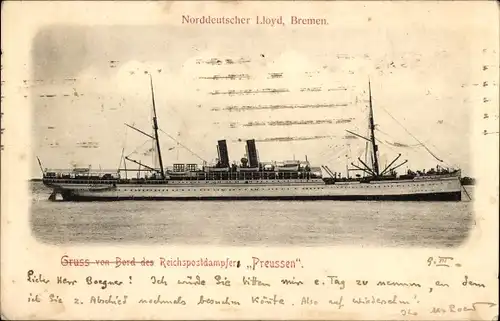 Norddeutscher Lloyd, Bremen.
Gruss von Bord des Reichspostdampfers „Preussen“.
9. III.
Lieber Herr Boegner! Ich würde Sie bitten mir e. Tag zu nennen, an dem
ich Sie z. Abschied nochmals besuchen könnte. Also auf wiedersehn!